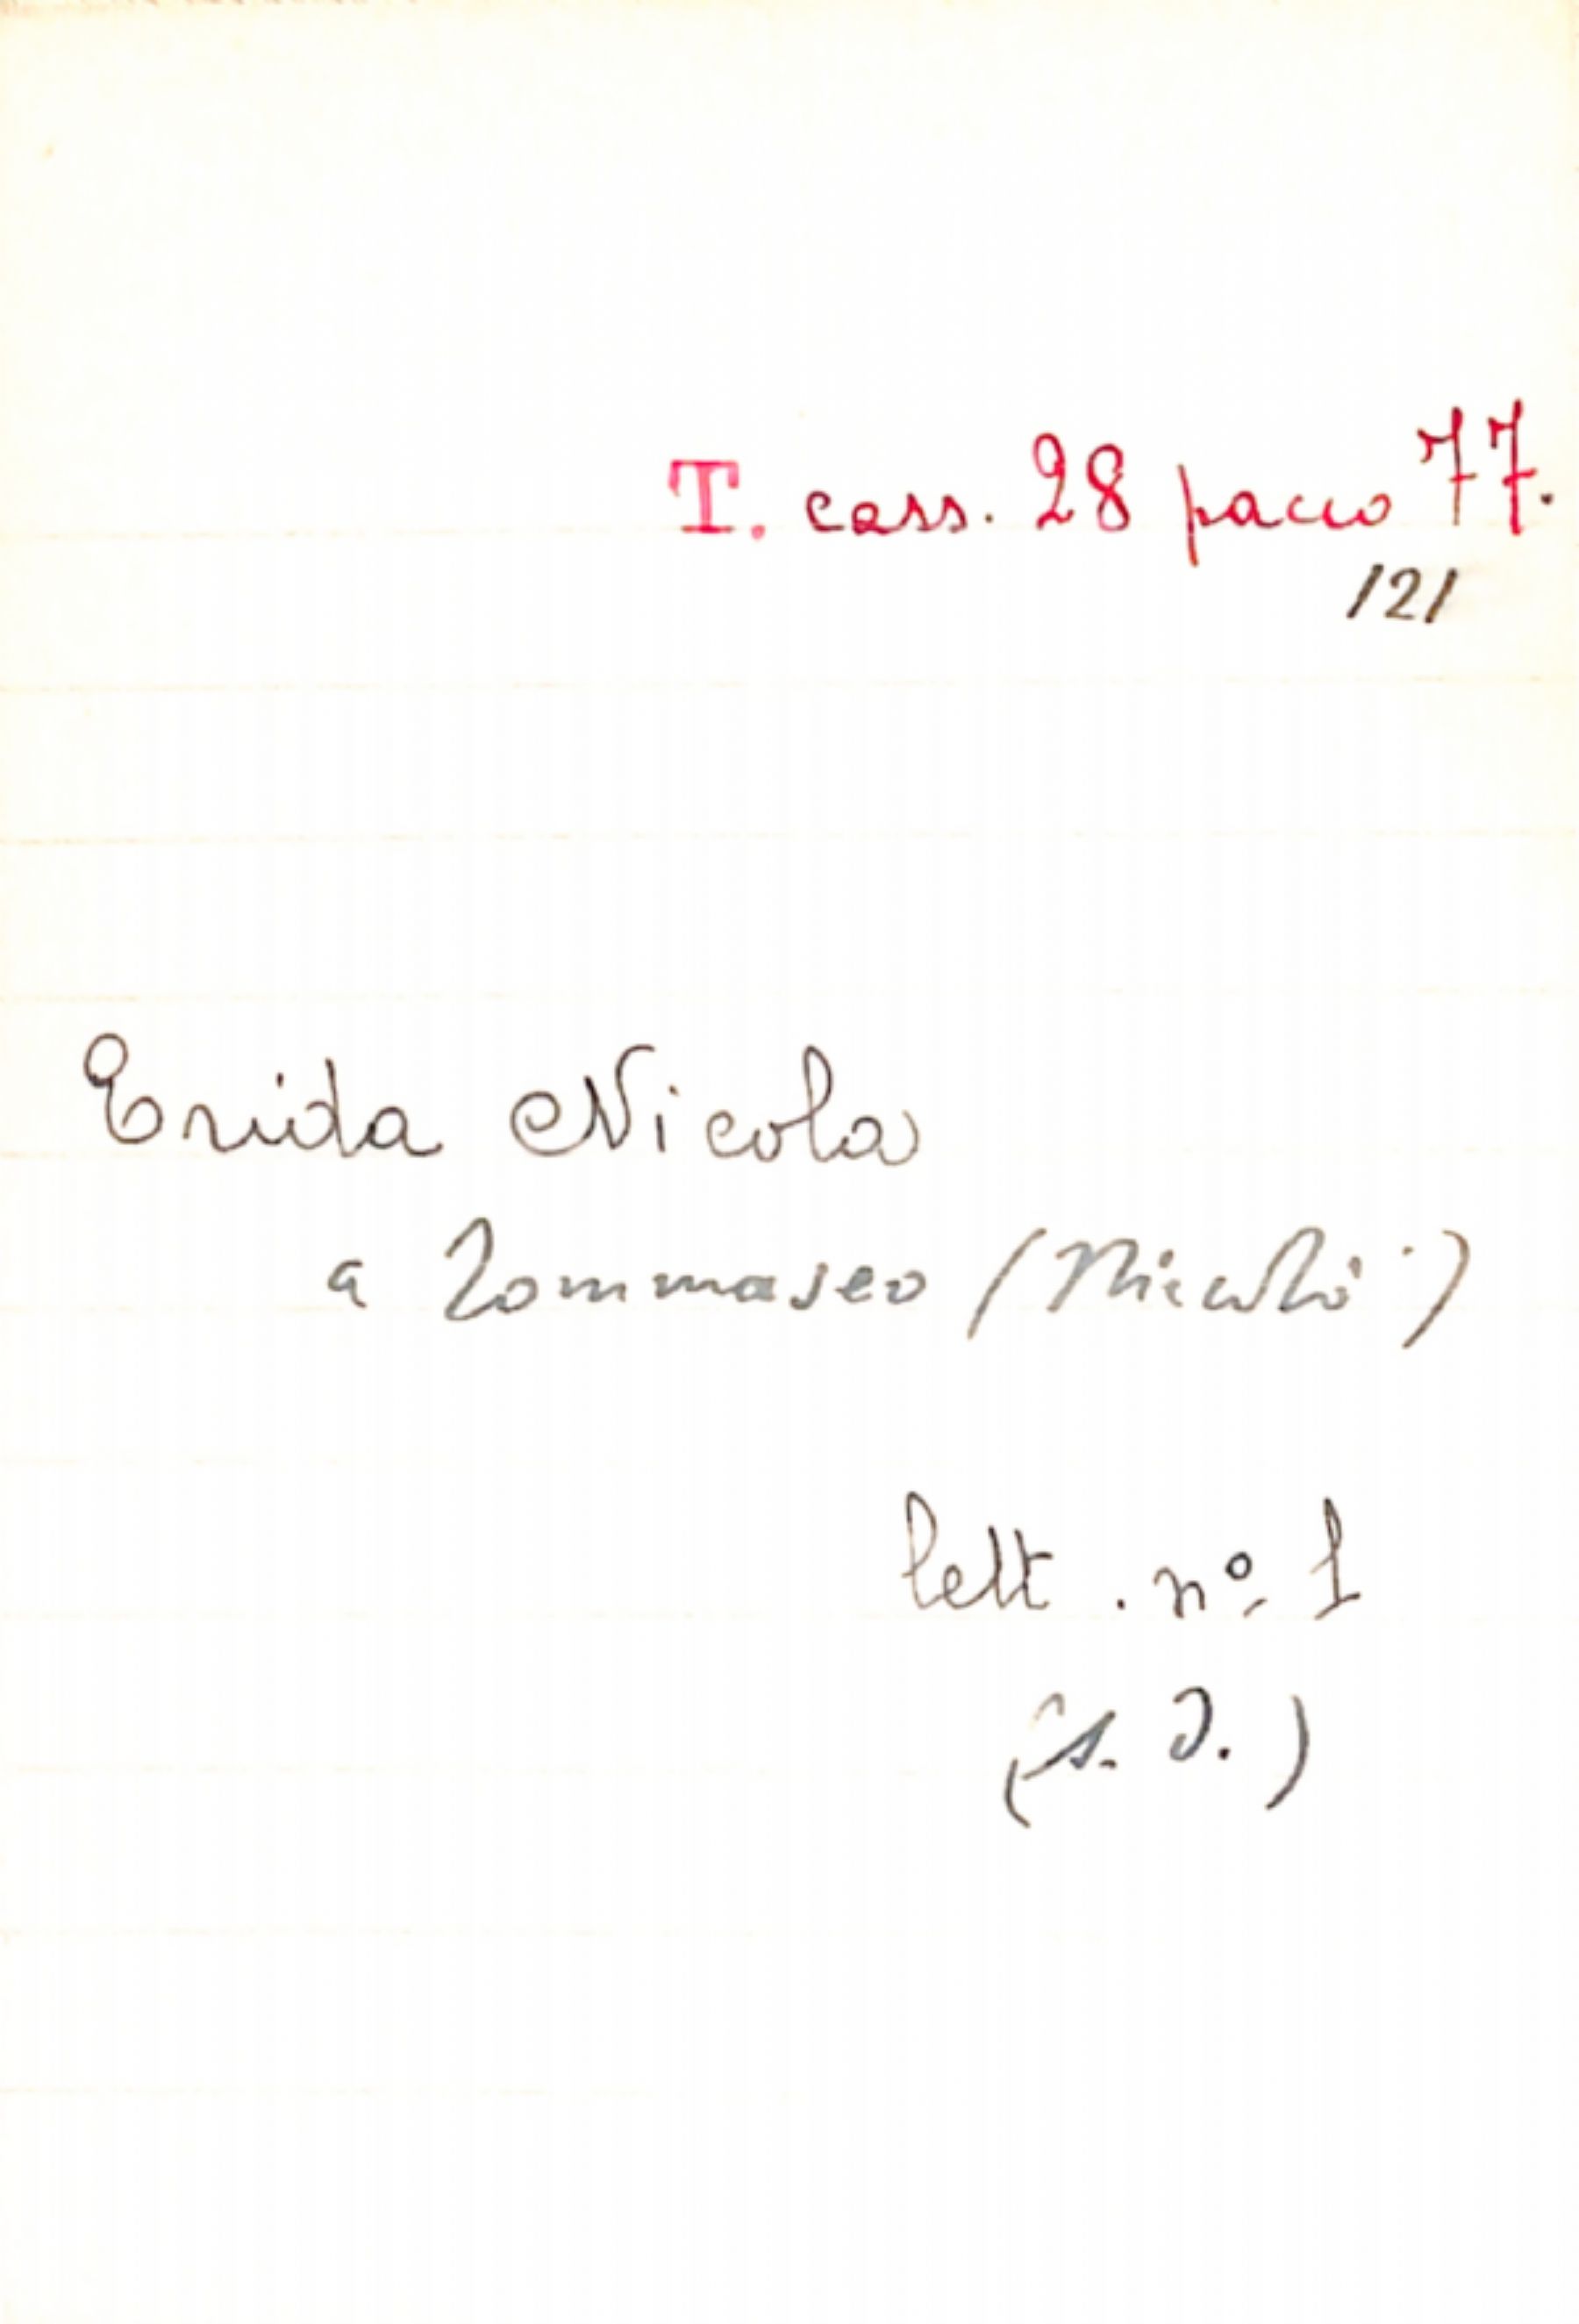 T. cass. 28 pacco 77.
121
Erida Nicola
a Tommaseo (Nicolò)
lett. nº 1
(s. d.)